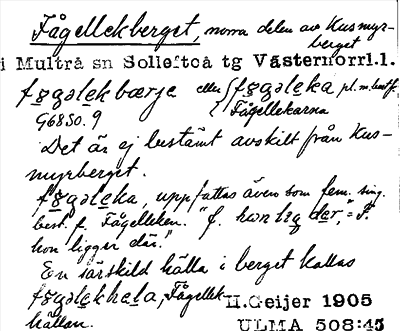 Fågellekberget, norra delen av Kusmyr-
berget
i Multrå sn Sollefteå tg Västernorrl.l.
fɷgəlekbærje eller { fɷgəleka pl. m. best. f.
G6850.9 { Fågellekarna
Det är ej bestämt avskilt från Kus-
myrberget.
fɷgəleka, uppfattas även som fem. sing.
best. f. Fågelleken. "f. hɷn lɩg där," = "F.
hon ligger där."
En särskild hälla i berget kallas
fɷgəlekhɛla, Fågellek-
hällan.
H.Geijer 1905
ULMA 508:45